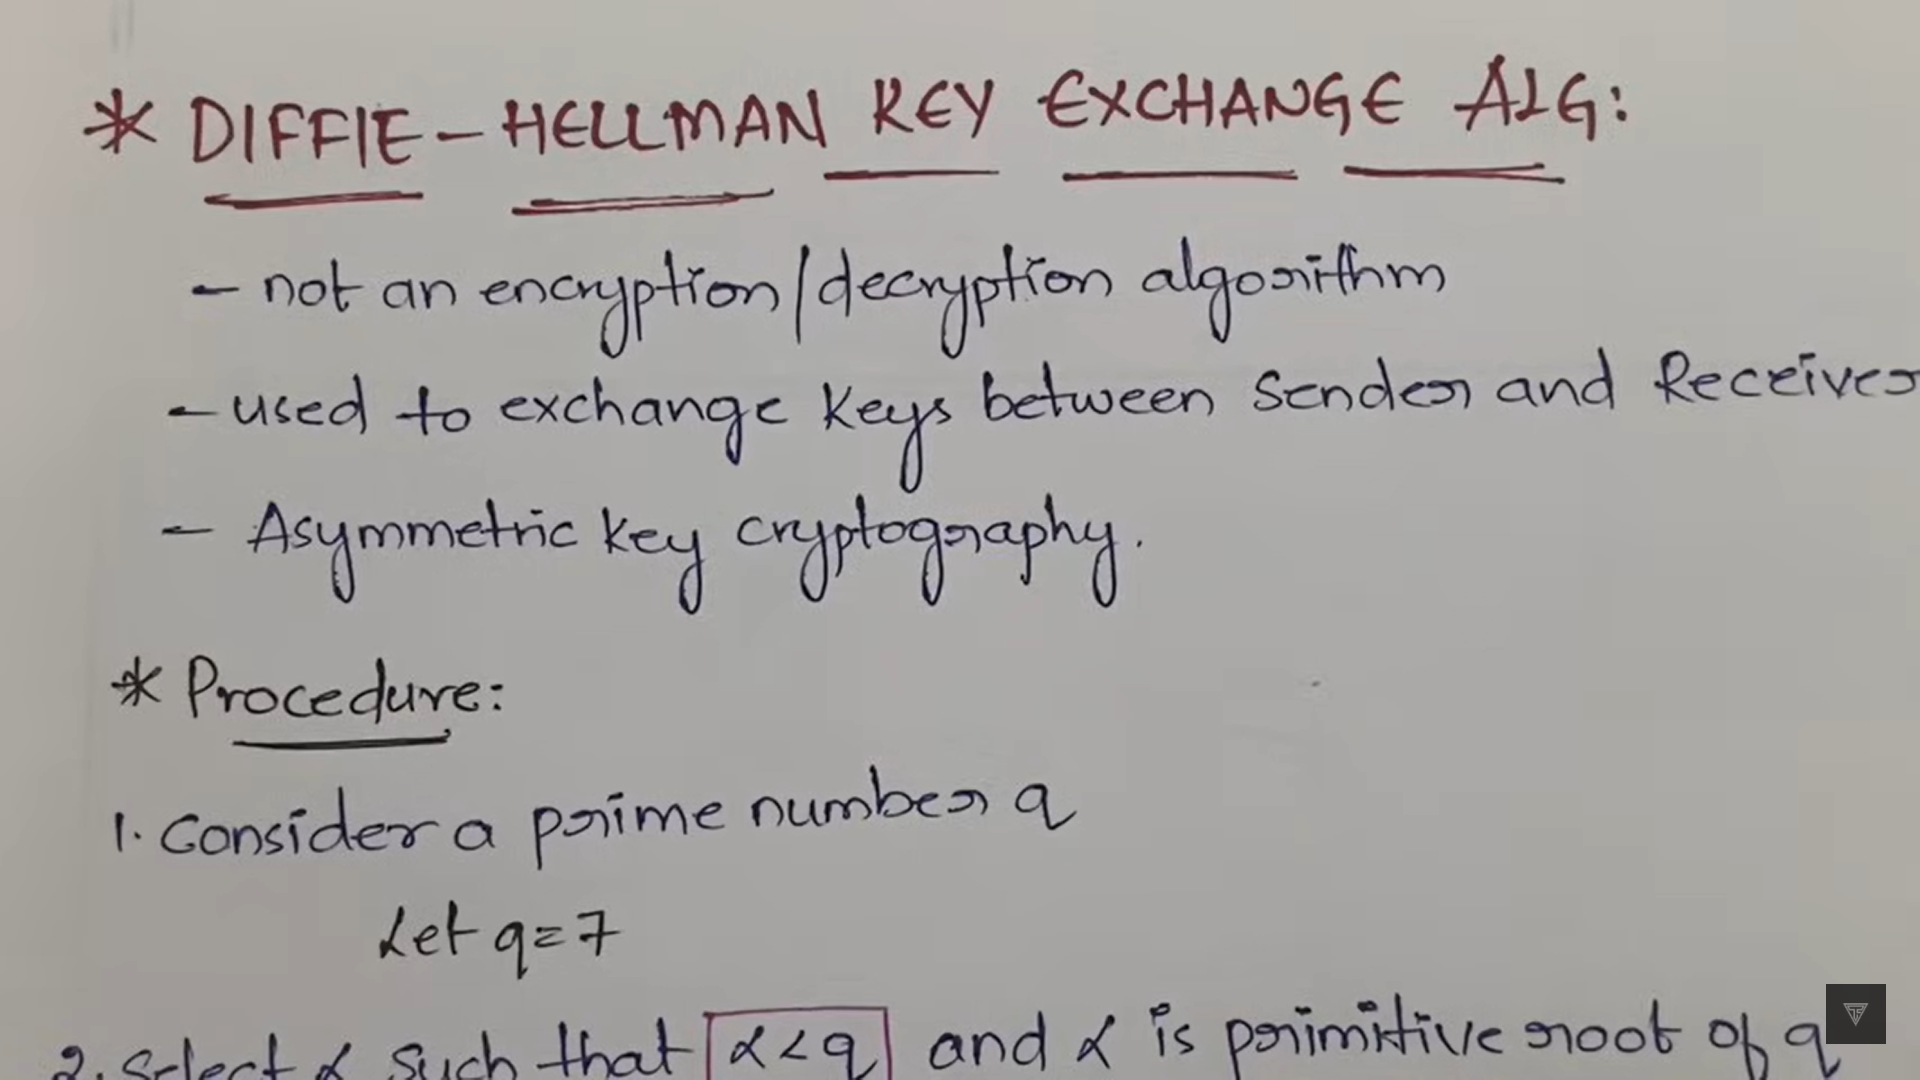 * DIFFIE-HELLMAN KEY EXCHANGE ALG:
- not an encryption/decryption algorithm
- used to exchange keys between Sender and Receiver
- Asymmetric key cryptography.
* Procedure:
1. Consider a prime number q
Let q=7
2. Select α such that α<q and α is primitive root of q